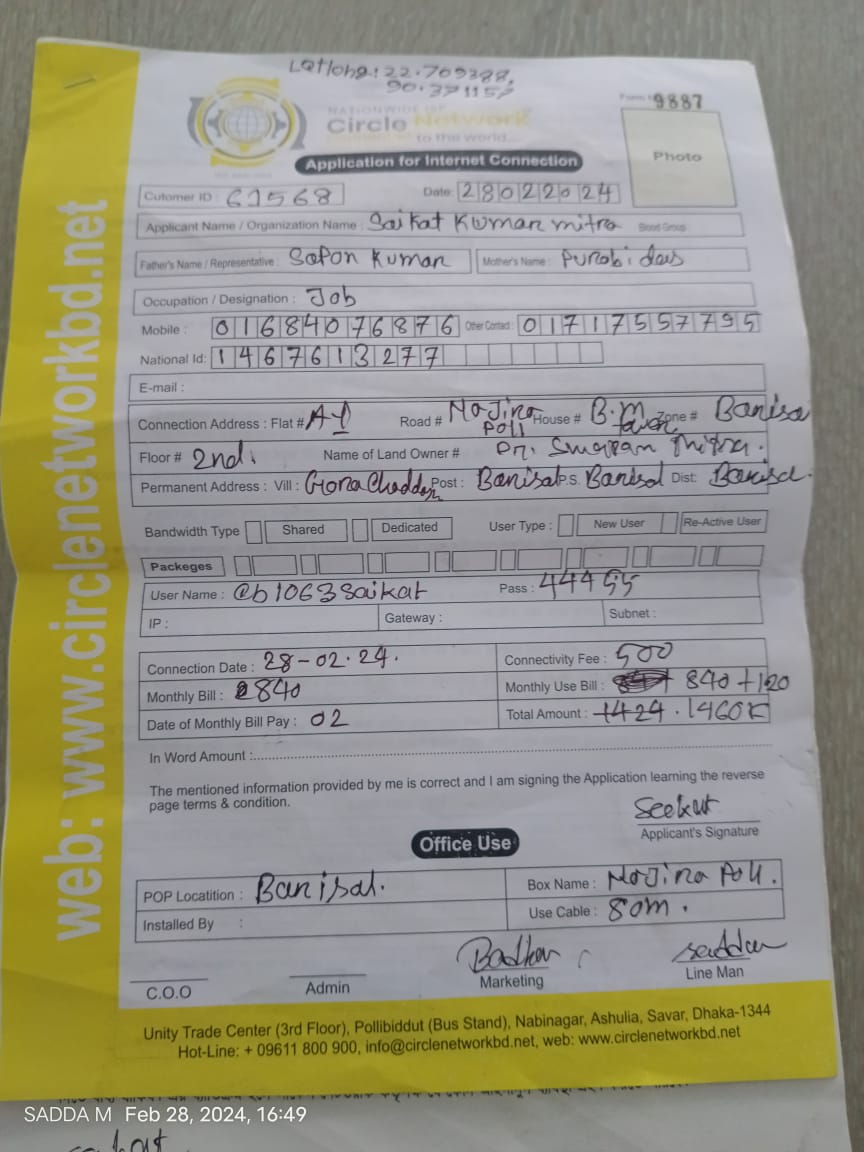 LatLong: 22.709388,
90.371157
Form # 9887
NATIONWIDE ISP
Circle Network
to the world...
Application for Internet Connection
Photo
Cutomer ID : 61568 Date: 28022024
Applicant Name / Organization Name : Saikat Kumar mitra Blood Group
Father's Name / Representative : Sapon Kumar Mother's Name : Purobi das
Occupation / Designation : Job
Mobile : 01684076876 Other Contact : 01717557795
National Id: 1467613277
E-mail :
Connection Address : Flat # A1 Road # Nojira Poll House # B.M Zone # Barisal
Floor # 2nd. Name of Land Owner # Dr. Mitra.
Permanent Address : Vill : Post : Barisal P.S. Barisal Dist: Barisal.
Bandwidth Type Shared Dedicated User Type : New User Re-Active User
Packeges
User Name : @b1063saikat Pass : 444455
IP : Gateway : Subnet :
Connection Date : 28-02.24. Connectivity Fee : 500
Monthly Bill : 840 Monthly Use Bill : 840 +120
Date of Monthly Bill Pay : 02 Total Amount : 1424. 1460
In Word Amount :
The mentioned information provided by me is correct and I am signing the Application learning the reverse
page terms & condition.
Seekut
Applicant's Signature
Office Use
POP Locatition : Barisal. Box Name : Nojira Poll.
Installed By : Use Cable : 80m.
C.O.O Admin Marketing Line Man
Unity Trade Center (3rd Floor), Pollibiddut (Bus Stand), Nabinagar, Ashulia, Savar, Dhaka-1344
Hot-Line: + 09611 800 900, info@circlenetworkbd.net, web: www.circlenetworkbd.net
web: www.circlenetworkbd.net
SADDA M Feb 28, 2024, 16:49